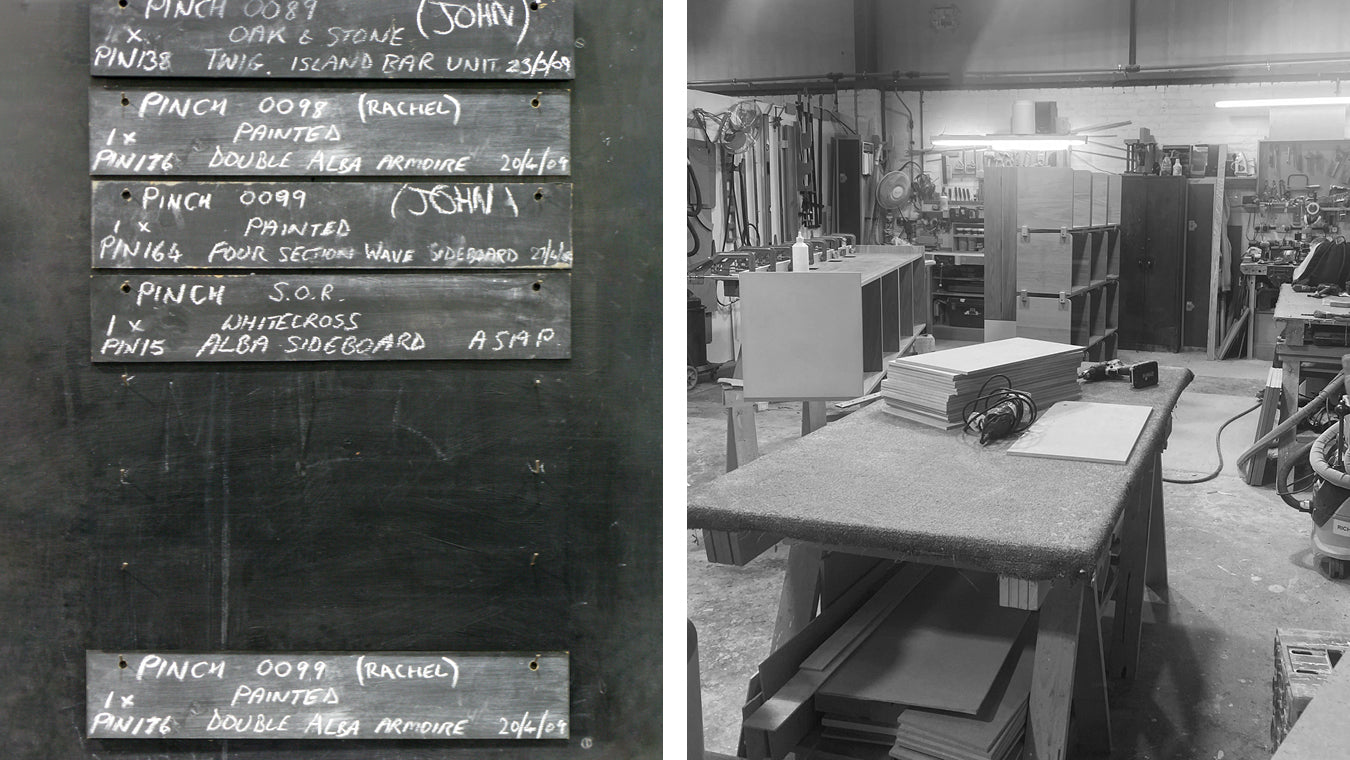 PINCH 0089 (JOHN)
1 x OAK & STONE
PIN138 TWIG. ISLAND BAR UNIT 23/3/09
PINCH 0098 (RACHEL)
1 x PAINTED
PIN176 DOUBLE ALBA ARMOIRE 20/4/09
PINCH 0099 (JOHN)
1 x PAINTED
PIN164 FOUR SECTION WAVE SIDEBOARD
PINCH S.O.R.
1 x WHITECROSS
PIN15 ALBA SIDEBOARD ASAP
PINCH 0099 (RACHEL)
1 x PAINTED
PIN176 DOUBLE ALBA ARMOIRE 20/4/09